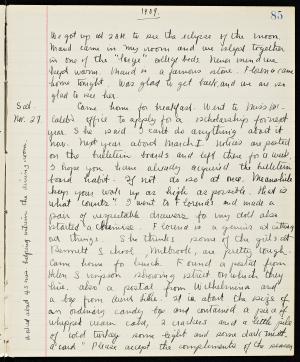 1909.
85
We got up at 2 A.M. to see the eclipse of the moon.
Maud came in my room and we slept together
in one of the "large" college beds. Never mind we
kept warm. Maud is a famous stove. Florence came
home tonight. Was glad to get back and we are so
glad to see her.
Sat.
Nov. 27
Came home for breakfast. Went to Miss
Caleb's office to apply for a scholarship for next
year. She said I can't do anything about it
now. "Next year about March 1, notices are posted
on the bulletin boards and left there for a week.
I hope you have already acquired the bulletin
board habit. If not do so at once. Meanwhile
keep your work up as high as possible. That is
what counts". I went to Florence's and made a
pair of vegetable drawers for my doll also
started a chemise. Florence is a genius at cutting
out things. She thinks some of the girls at
Bennett School, Millbrook, are pretty tough.
Came home to lunch. Found a postal from
Helen Simpson showing street on which they
live. Also a postal from Wilhelmina and
a box from Aunt Kike. It is about the size of
an ordinary candy box and contained a piece of
whipped cream cake, 2 crackers and a little pile
of cold turkey some night and some dark meat,
a card "Please accept the compliments of the season